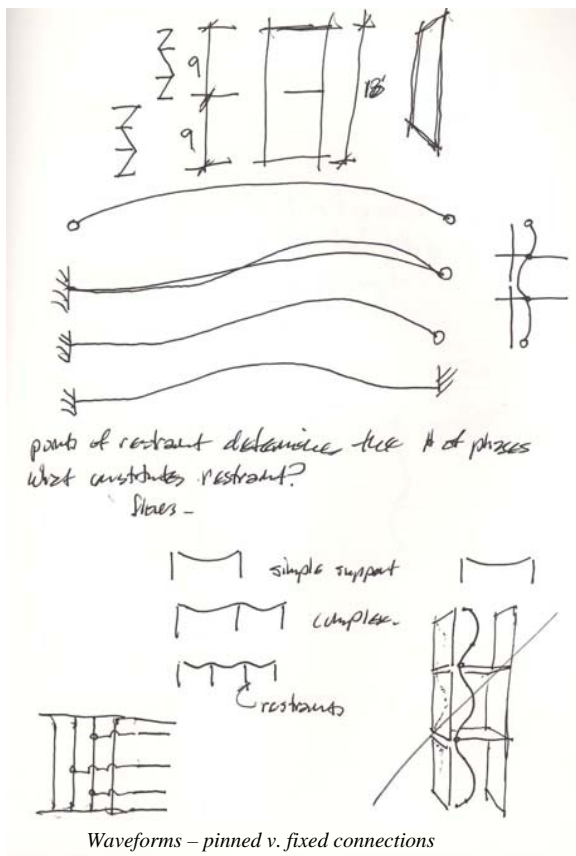 9
18'
9
points of restraint determine the # of phases
what constitutes restraint?
floors -
simple support
complex.
restraints
Waveforms – pinned v. fixed connections